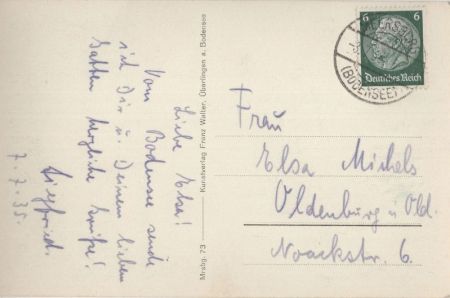 Liebe Elsa!
Vom Bodensee sende
ich Dir u. Deinem lieben
Gatten herzliche Grüße!
Siegfried.
7. 7. 35.
Mrsbg. 73 Kunstverlag Franz Walter, Überlingen a. Bodensee
6 6
Deutsches Reich
(BODENSEE)
Frau
Elsa Michels
Oldenburg i. Old.
Noackstr. 6.